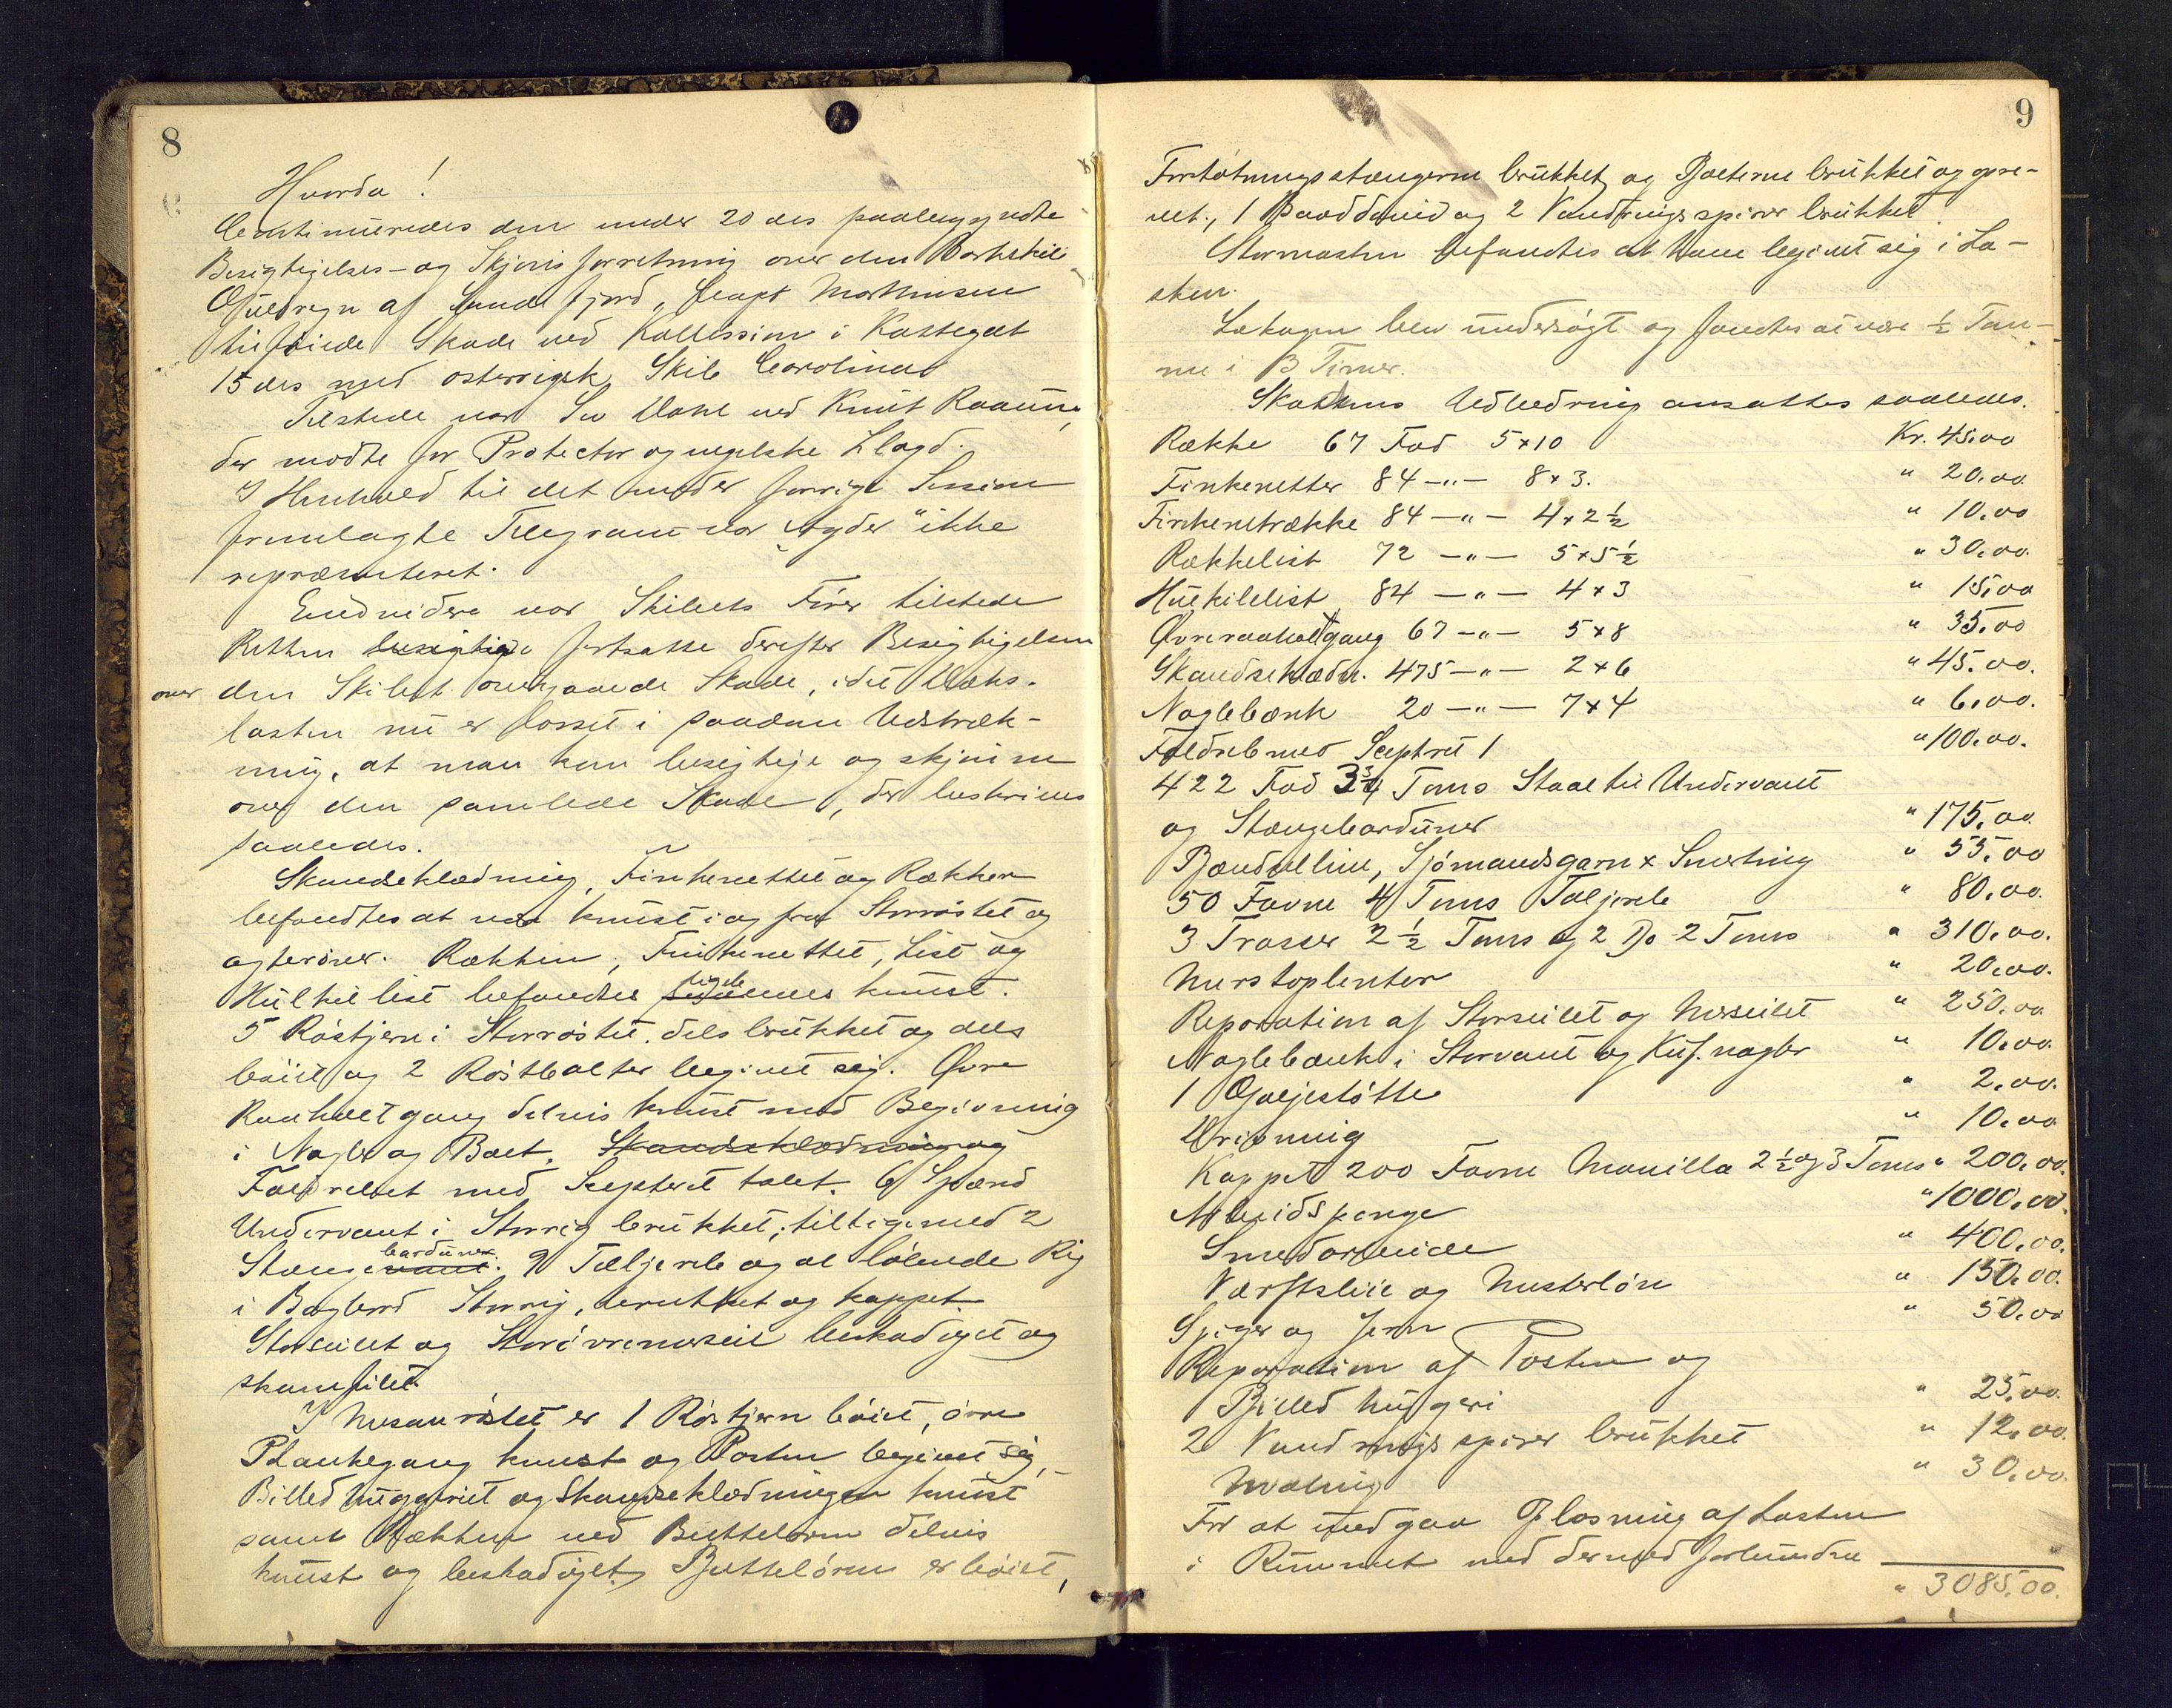 8
Hvorda!
Continueredes den under 20 des paabegyndte
Besigtigelses- og Skjønsforretning over den Barkskib
Gueldregn af Sandefjord, Capt Mathisen
tilføiede Skade ved Kollission i Kattegat
15 des med østerrigsk Skib Carolina.
Tilstede var Sv Dahl ved Knut Raaum,
der mødte for Protector og engelske Lloyd.
I Henhold til det under forrige Session
fremlagte Telegram var "Agder" ikke
repræsenteret.
Endvidere var Skibets Fører tilstede
Retten besigtige fortsatte derefter Besigtigelsen
over den Skibet overgaaede Skade, idet Dæks-
lasten nu er losset i saadan Udstræk-
ning, at man kan besigtige og skjønne
over den samlede Skade, der beskrives
saaledes.
Skandseklædning, Finkenettet og Rækken
befandtes at være knust i og for Storrøstet og
agterover. Rækken, Finkenettet, List og
Hulkillist befandtes ligeledes knust.
5 Røstjern i Storrøstet dels brukket og dels
bøiet og 2 Røstbolter begivet sig. Øvre
Raaholtgang delvis knust med Begivning
i Nagler og Bolt. Skandseklædning og
Faldrebet med Scepteret tabt. 6 Spænd
Undervant i Storrig brukket, tilligemed 2
Stængevant barduner. 9 Taljereb og al løbende Rig
i Bagbord Storrig, brukket og kappet
Storseilet og Storøvremerseil beskadiget og
skamfilet
I Mesanrøstet er 1 Røstjern bøiet, øvre
Plankegang knust og Posten begivet sig,
Billedhuggeriet og Skandseklædningen knust
samt Rækken ved Bøttelørene delvis
knust og beskadiget, Bøttelørene er bøiet,
9
Fortøiningsstængerne brukket og Bolterne brukket og gore-
vet, 1 Baaddavid og 2 Vandrings spirer brukket
Stormasten befandtes at have begivet sig i La-
sken.
Lakagen blev undersøgt og fandtes at være ½ Tom-
me i 3 Timer.
Skadens Udbedring ansattes saaledes.
Række 67 Fod 5x10 Kr. 45.00
Finkenetter 84 -"- 8x3. " 20.00
Finkenetrække 84 -"- 4x2½ " 10.00
Rækkelist 72 -"- 5x5½ " 30.00
Hulkillist 84 -"- 4x3 " 15.00
Øvreraaholtgang 67 -"- 5x8 " 35.00
Skandseklædn. 475 -"- 2x6 " 45.00.
Naglebænk 20 -"- 7x4 " 6.00.
Faldreb med Sceptret 1 " 100.00.
422 Fod 3¾ Toms Staal til Undervant
og Stængebarduner " 175.00
Bændselline, Sjömandsgarn x Smerting " 55.00
50 Favne 4 Toms Taljereb " 80.00.
3 Trosser 2½ Toms og 2 Do 2 Toms " 310.00.
Merstoplenter " 20.00.
Reparation af Storseilet og Merseilet " 250.00
Naglebænk i Storvant og Kof.nagler " 10.00.
1 Galjestøtte " 2.00.
Drivning " 10.00
Kappet 200 Favne Manilla 2½ og 3 Toms " 200.00.
Arbeidspenge " 1000.00.
Smedarbeide " 400.00.
Værftsleie og Mesterløn " 150.00.
Spiger og Jern " 50.00
Reparation af Posten og
Billedhuggeri " 25.00.
2 Vandrings spirer brukket " 12.00.
Maling " 30.00.
For at undgaa Oplosning af Lasten
i Rummet med dermed forbundne
" 3085.00.